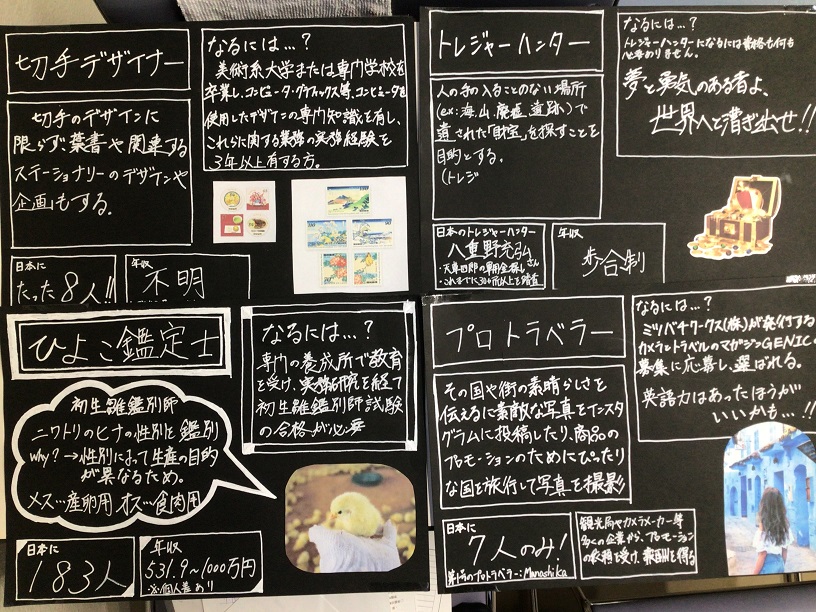 切手デザイナー
なるには…?
美術系大学または専門学校を
卒業し、コンピュータ・グラフィックス等、コンピュータを
使用したデザインの専門知識を有し、
これらに関する業務の実務経験を
3年以上有する方。
切手のデザインに
限らず葉書や関連する
ステーショナリーのデザインや
企画もする。
日本に
たった8人!!
年収
不明
トレジャーハンター
なるには…?
トレジャーハンターになるには資格も何も
必要ありません。
夢と勇気のある者よ、
世界へと漕ぎ出せ!!
人の手の入ることのない場所
(ex:海、山、廃墟、遺跡)で
遺された「財宝」を探すことを
目的とする。
(トレジ
日本のトレジャーハンター
八重野充弘さん
・天草四郎の軍用金探し
・これまでに30か所以上を踏査
年収
歩合制
ひよこ鑑定士
なるには…?
専門の養成所で教育
を受け、実務研究を経て
初生雛鑑別師試験
の合格が必要
初生雛鑑別師
ニワトリのヒナの性別を鑑別
why?→性別によって生産の目的
が異なるため。
メス…産卵用、オス…食肉用
日本に
183人
年収
531.9~1000万円
※個人差あり
プロトラベラー
なるには…?
ミツバチワークス(株)が発行する
カメラとトラベルのマガジンGENICの
募集に応募し、選ばれる。
英語力はあったほうが
いいかも…!!
その国や街の素晴らしさを
伝えるに素敵な写真をインスタ
グラムに投稿したり、商品の
プロモーションのためにぴったり
な国を旅行して写真を撮影
日本に
7人のみ!
第1号のプロトラベラー:Manashika
観光局やカメラメーカー等
多くの企業から、プロモーション
の依頼を受け、報酬を得る